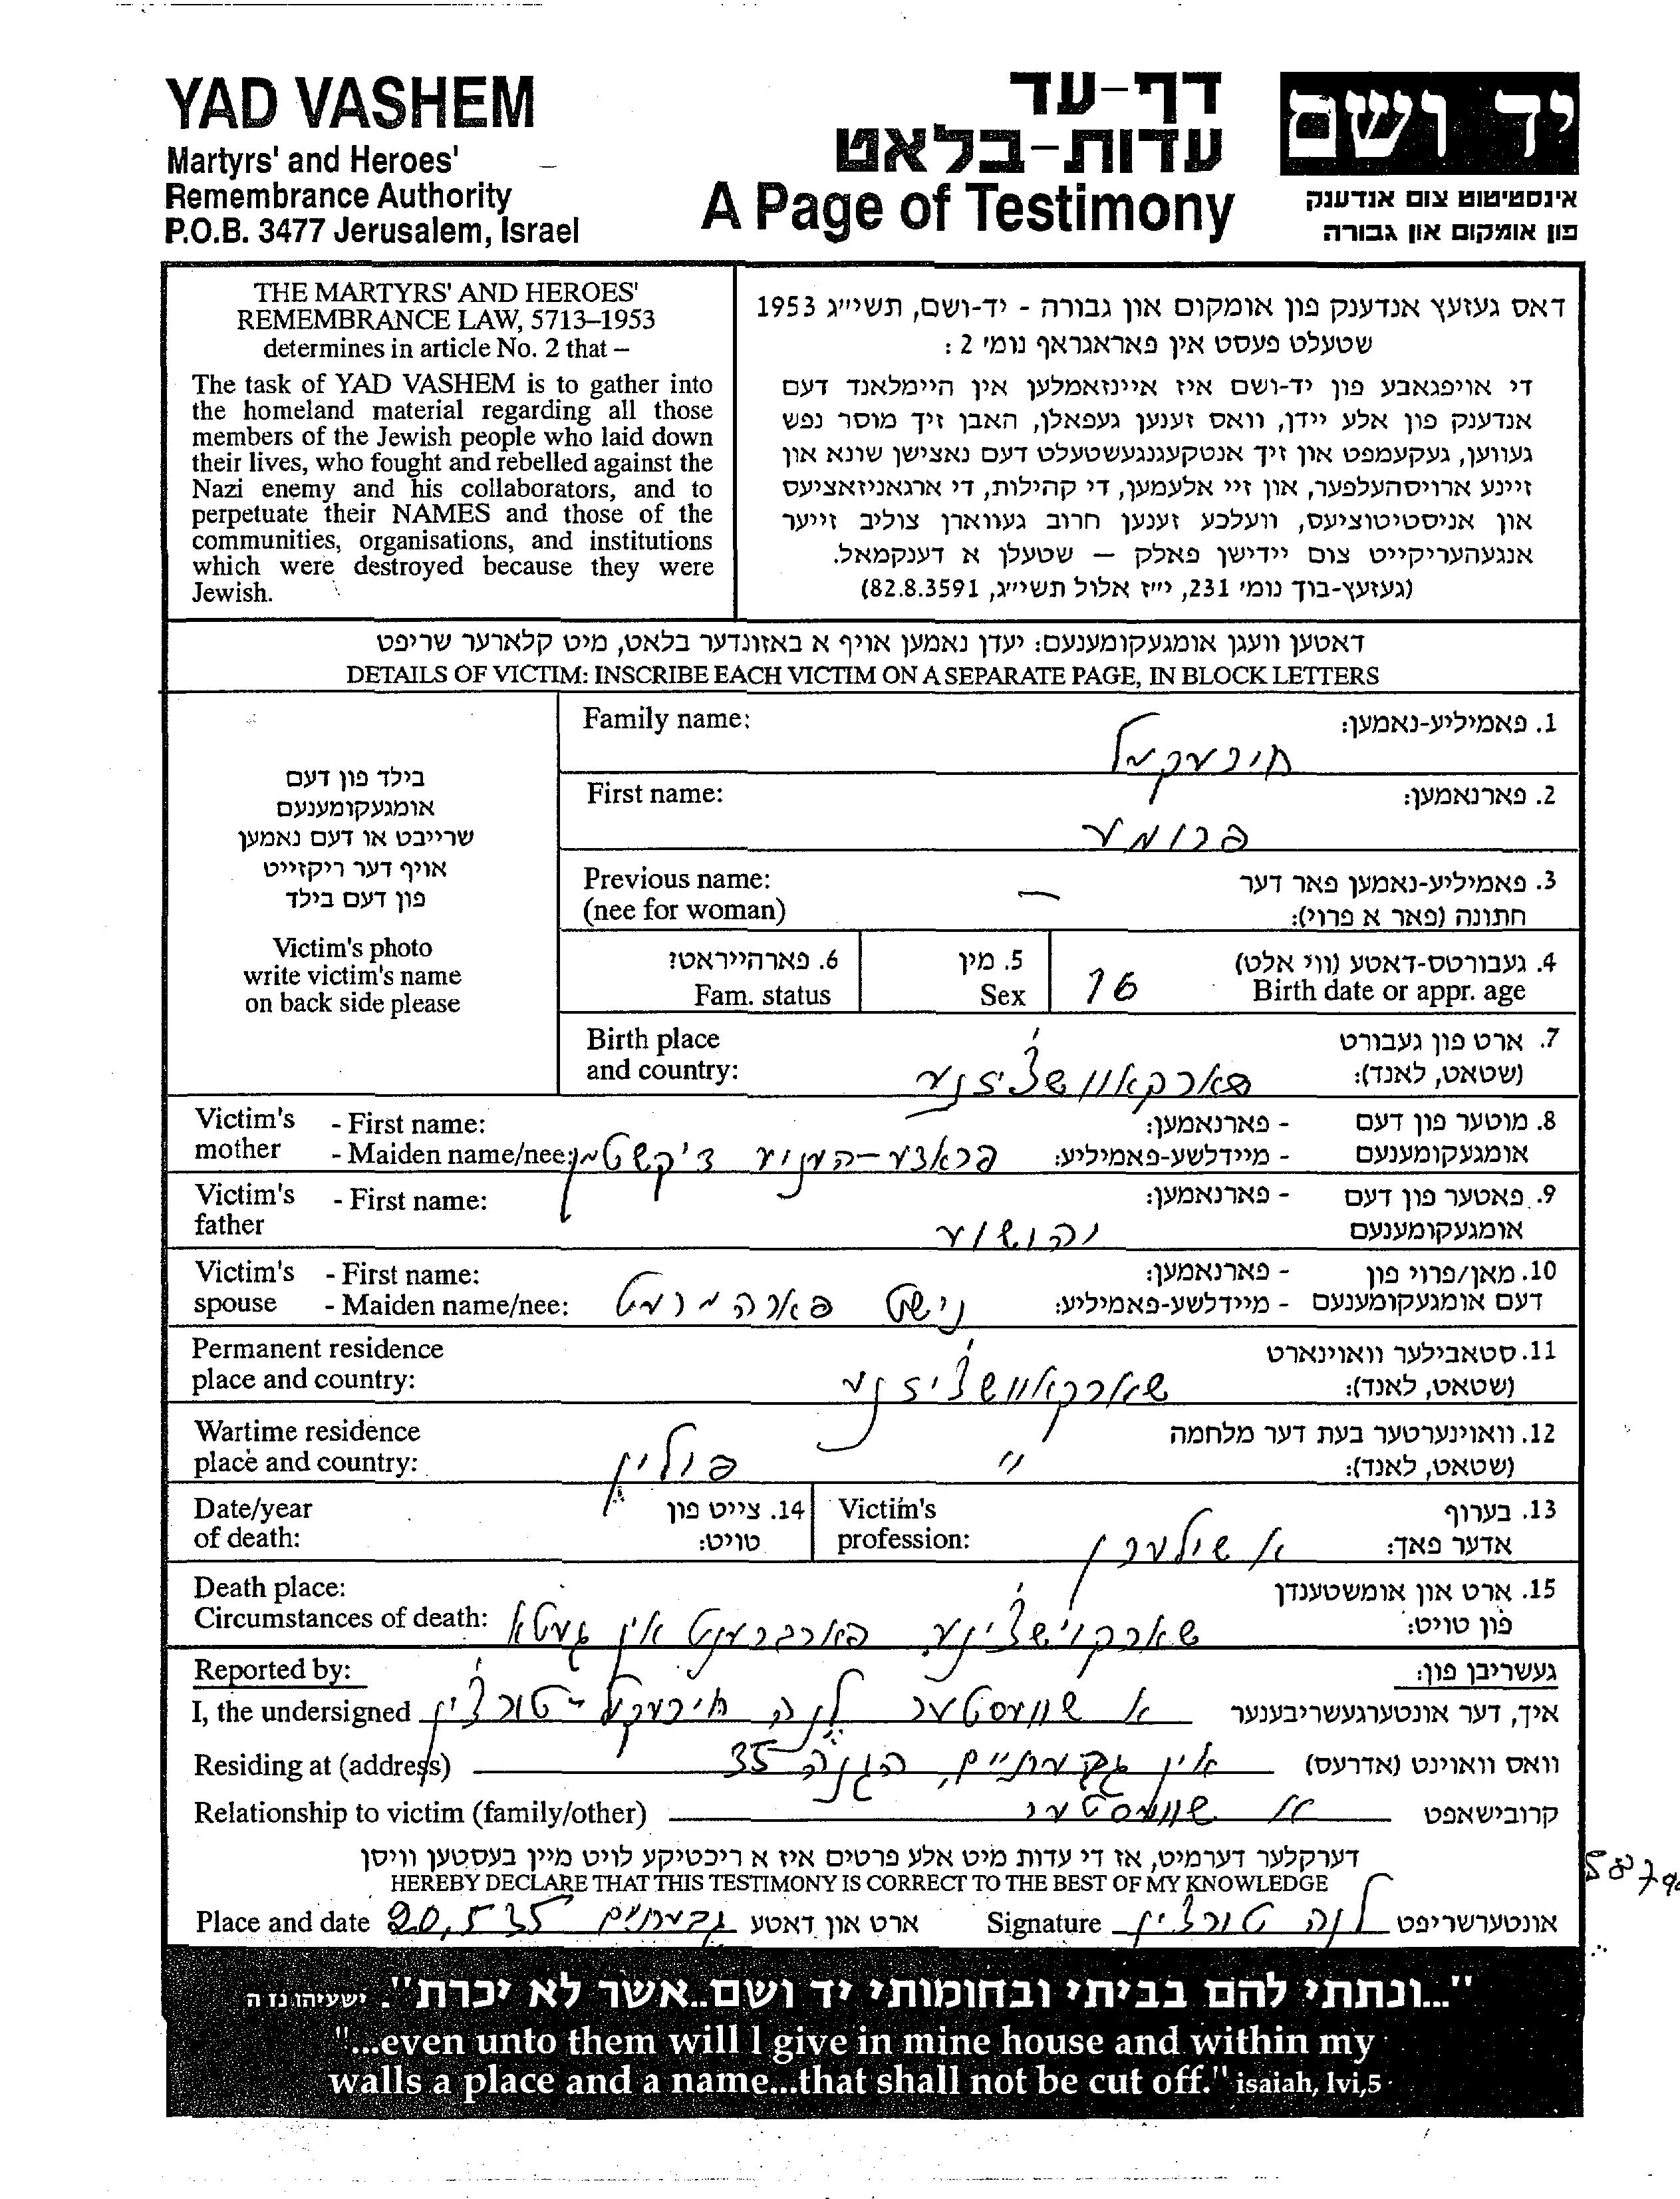 YAD VASHEM
Martyrs' and Heroes'
Remembrance Authority
P.O.B. 3477 Jerusalem, Israel
דף-עד
עדות-בלאט
A Page of Testimony
יד ושם
אינסטיטוט צום אנדענק
פון אומקום און גבורה
THE MARTYRS' AND HEROES'
REMEMBRANCE LAW, 5713–1953
determines in article No. 2 that –
The task of YAD VASHEM is to gather into
the homeland material regarding all those
members of the Jewish people who laid down
their lives, who fought and rebelled against the
Nazi enemy and his collaborators, and to
perpetuate their NAMES and those of the
communities, organisations, and institutions
which were destroyed because they were
Jewish.
דאס געזעץ אנדענק פון אומקום און גבורה - יד-ושם, תשי״ג 1953
שטעלט פעסט אין פאראגראף נומ׳ 2 :
די אויפגאבע פון יד-ושם איז איינזאמלען אין היימלאנד דעם
אנדענק פון אלע יידן, וואס זענען געפאלן, האבן זיך מוסר נפש
געווען, געקעמפט און זיך אנטקעגנגעשטעלט דעם נאצישן שונא און
זיינע ארויסהעלפער, און זיי אלעמען, די קהילות, די ארגאניזאציעס
און אניסטיטוציעס, וועלכע זענען חרוב געווארן צוליב זייער
אנגעהעריקייט צום יידישן פאלק – שטעלן א דענקמאל.
(געזעץ-בוך נומ׳ 231, י״ז אלול תשי״ג, 82.8.3591)
דאטען וועגן אומגעקומענעם: יעדן נאמען אויף א באזונדער בלאט, מיט קלארער שריפט
DETAILS OF VICTIM: INSCRIBE EACH VICTIM ON A SEPARATE PAGE, IN BLOCK LETTERS
בילד פון דעם
אומגעקומענעם
שרייבט או דעם נאמען
אויף דער ריקזייט
פון דעם בילד
Victim's photo
write victim's name
on back side please
Family name: 1. פאמיליע-נאמען:
First name: פרומע 2. פארנאמען:
Previous name: — 3. פאמיליע-נאמען פאר דער
(nee for woman) חתונה (פאר א פרוי):
6. פארהייראט? 5. מין 16 4. געבורטס-דאטע (ווי אלט)
Fam. status Sex Birth date or appr. age
Birth place 7. ארט פון געבורט
and country: שארקאוושציזנע (שטאט, לאנד):
Victim's - First name: - פארנאמען: 8. מוטער פון דעם
mother - Maiden name/nee: - מיידלשע-פאמיליע: אומגעקומענעם
Victim's - First name: - פארנאמען: 9. פאטער פון דעם
father יהושוע אומגעקומענעם
Victim's - First name: - פארנאמען: 10. מאן/פרוי פון
spouse - Maiden name/nee: נישט - מיידלשע-פאמיליע: דעם אומגעקומענעם
Permanent residence 11. סטאבילער וואוינארט
place and country: שארקאוושציזנע (שטאט, לאנד):
Wartime residence 12. וואוינערטער בעת דער מלחמה
place and country: " פולין (שטאט, לאנד):
Date/year 14. צייט פון Victim's 13. בערוף
of death: טויט: profession: א שילערן אדער פאך:
Death place: 15. ארט און אומשטענדן
Circumstances of death: פארברענט אין געטא פון טויט:
Reported by: געשריבן פון:
I, the undersigned א שוועסטער לנה טורצין איך, דער אונטערגעשריבענער
Residing at (address) אין גבעתיים, הגנה 35 וואס וואוינט (אדרעס)
Relationship to victim (family/other) א שוועסטער קרובישאפט
דערקלער דערמיט, אז די עדות מיט אלע פרטים איז א ריכטיקע לויט מיין בעסטען וויסן
HEREBY DECLARE THAT THIS TESTIMONY IS CORRECT TO THE BEST OF MY KNOWLEDGE
Place and date גבעתיים ארט און דאטע Signature לנה טורצין אונטערשריפט
"...ונתתי להם בביתי ובחומותי יד ושם..אשר לא יכרת". ישעיהו נז ה
"...even unto them will I give in mine house and within my
walls a place and a name...that shall not be cut off." isaiah, lvi,5